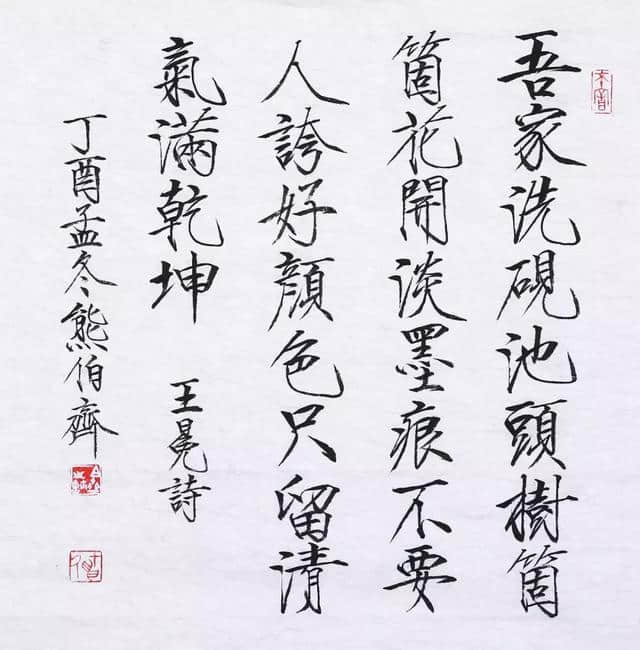 吾家洗硯池頭樹箇
箇花開淡墨痕不要
人誇好顔色只留清
氣滿乾坤
王冕詩
丁酉孟冬熊伯齊